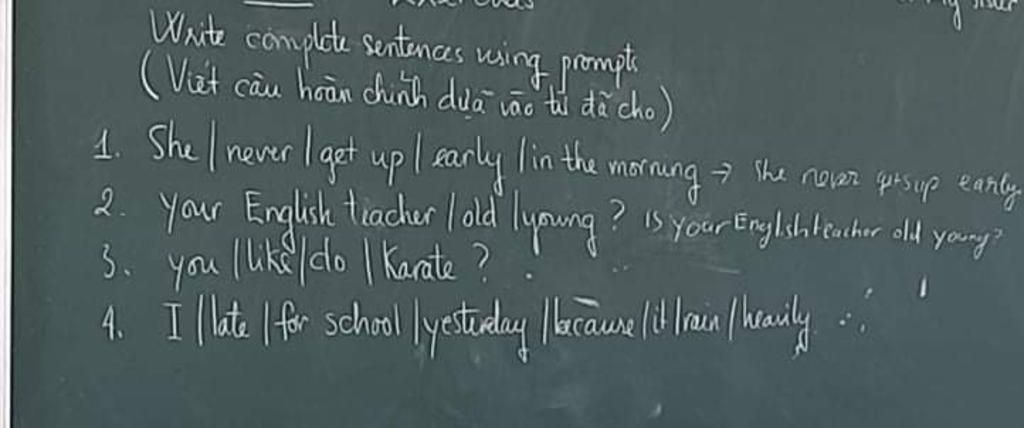 Write complete sentences using prompts
(Viết câu hoàn chỉnh dựa vào từ đã cho)
1. She / never / get up / early / in the morning → She never getsup early
2. your English teacher / old / young ? Is your English teacher old young?
3. you / like / do / Karate ?
4. I / late / for school / yesterday / because / it / rain / heavily